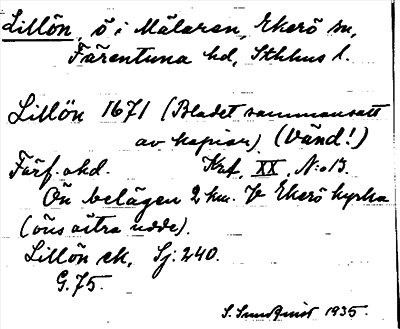 Lillön, ö i Mälaren, Ekerö sn,
Färentuna hd, Sthlms l.
Lillön 1671 (Bladet sammansatt
av kopior) (Vänd!)
Färf. ahd. Kaf. XX. N:o 13.
Ön belägen 2 km. V Ekerö kyrka
(öns östra udde).
Lillön ek, Sj: 240.
G. 75.
S. Sundquist 1935.